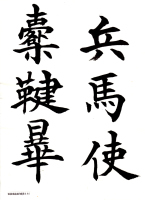 兵馬使
櫜鞬畢